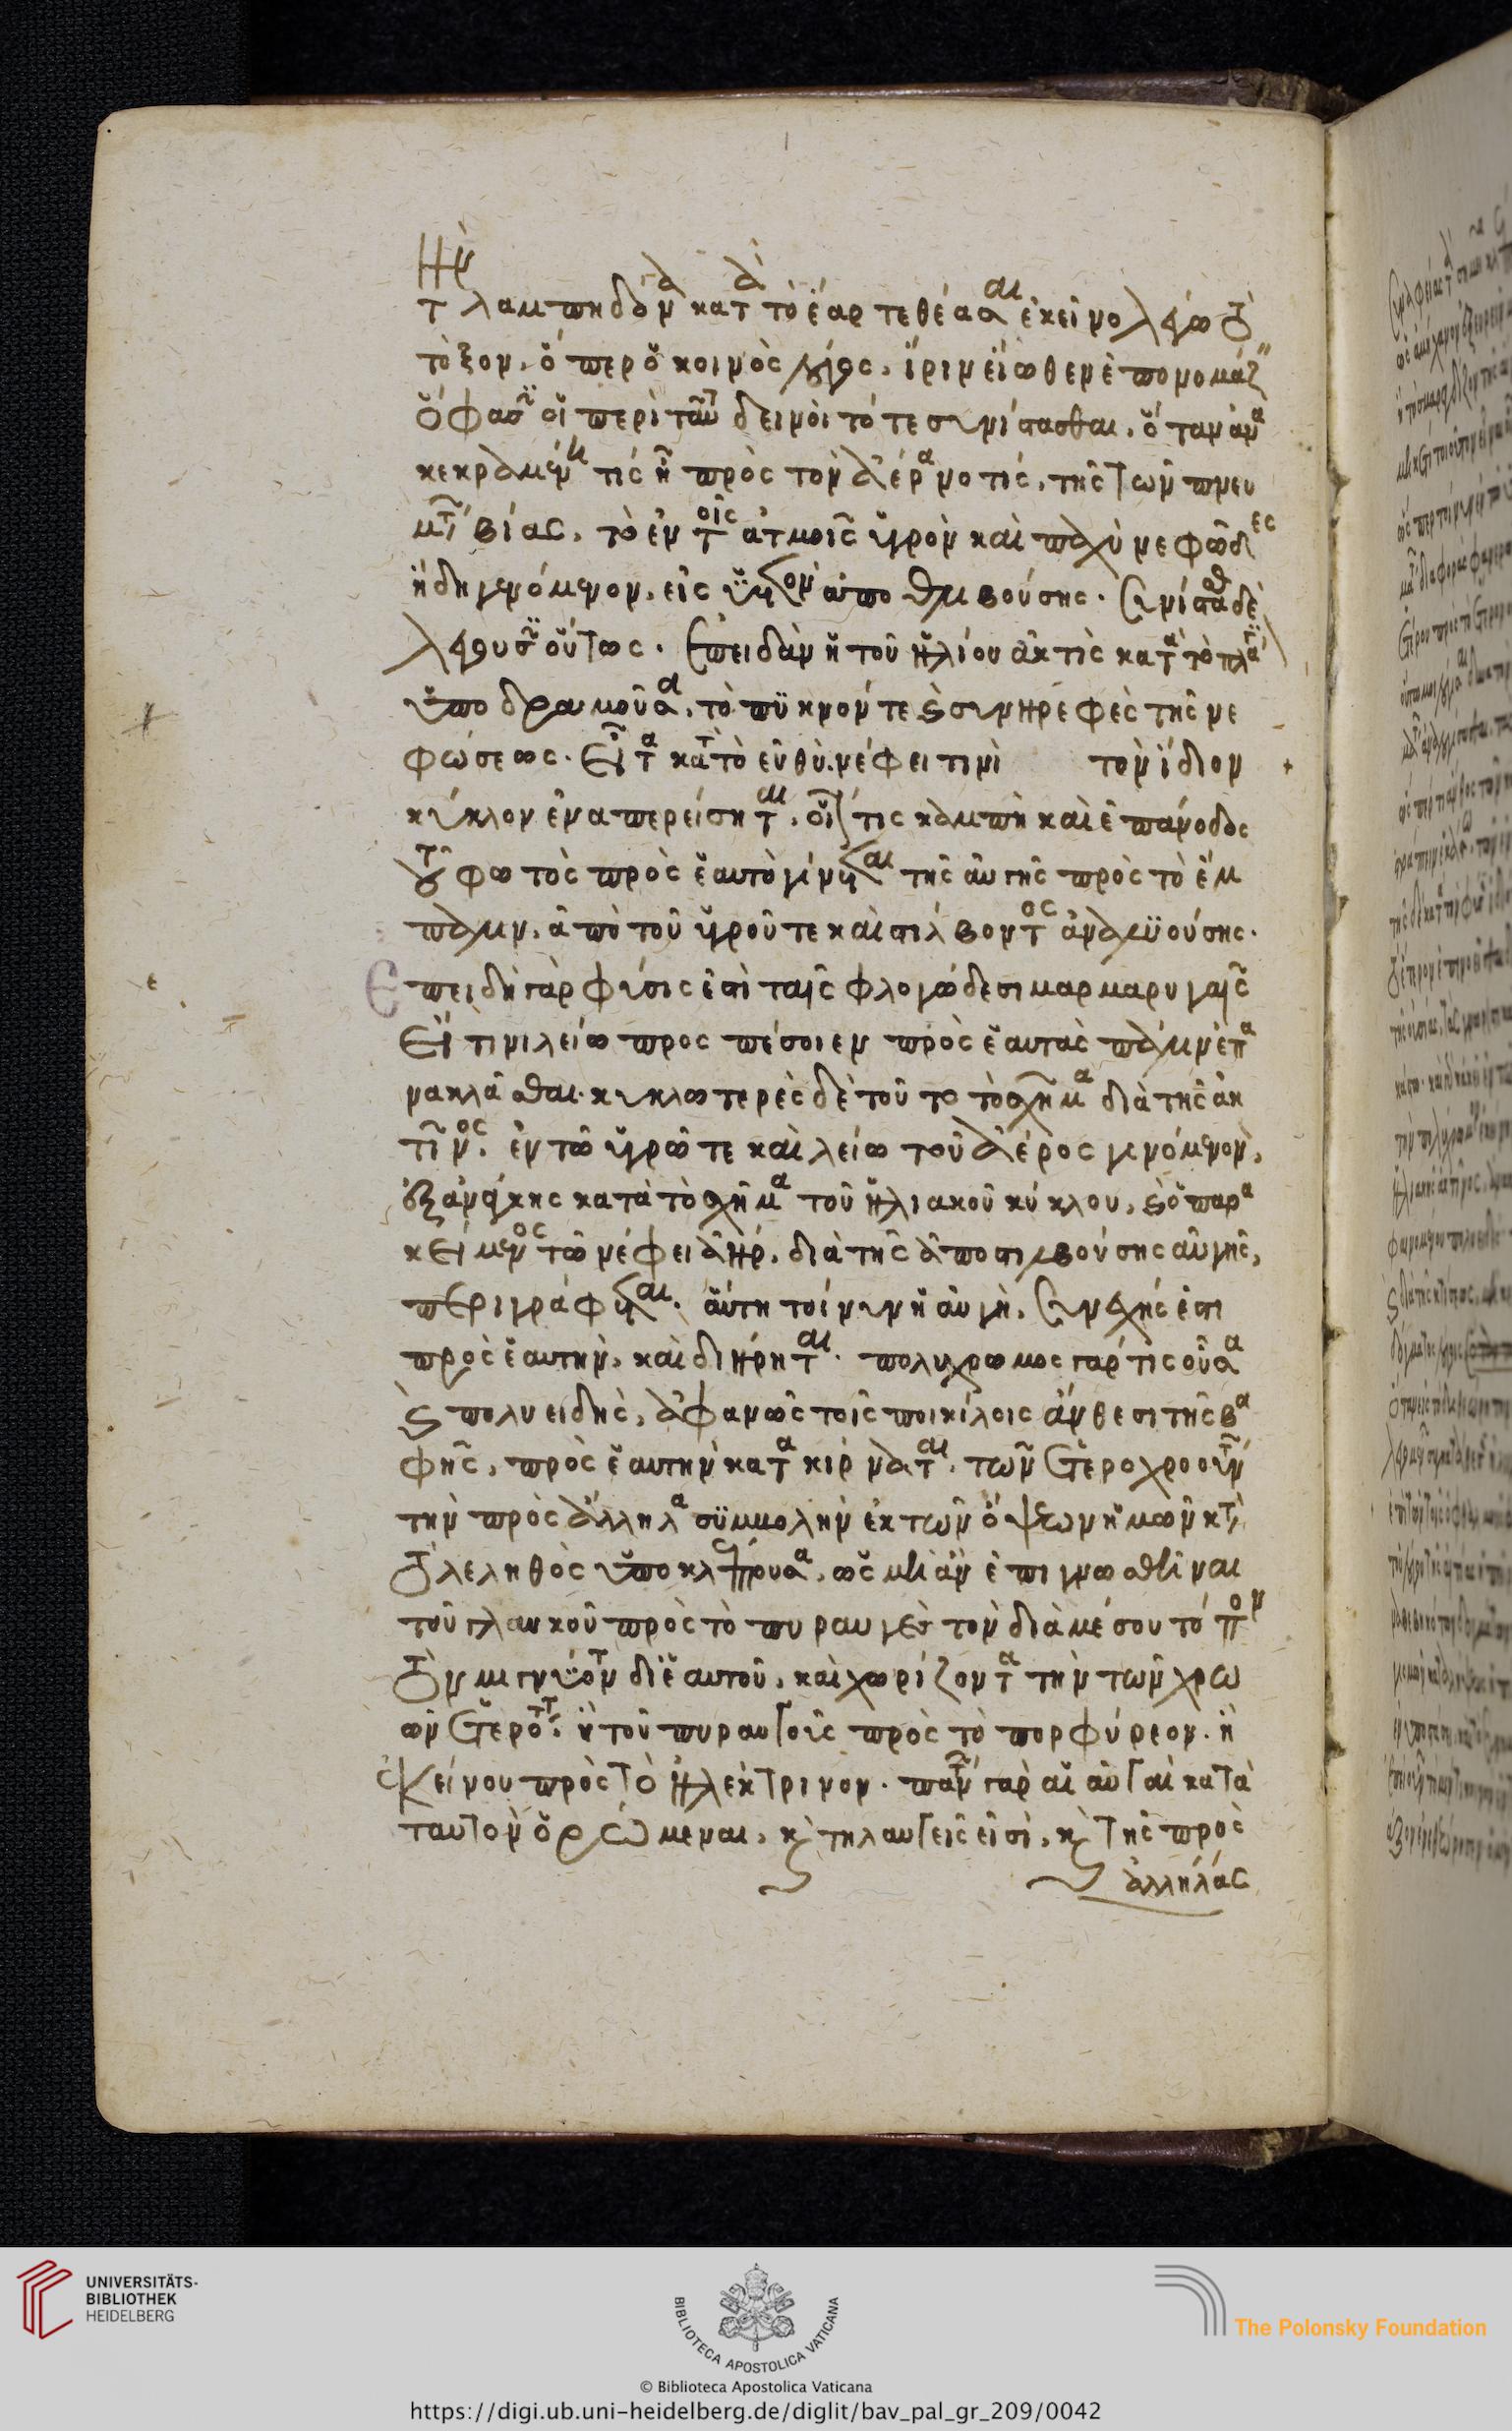 Ην
τ λαμπηδόνα κατὰ τὸ ἔαρ τεθέασαι ἐκεῖνο λέγω τὸ
τόξον, ὅπερ ὁ κοινὸς λόγος, ἴριν εἴωθεν ἐπονομάζ
ὅ φασιν οἱ περὶ ταῦτ δεινοὶ τότε συνίστασθαι, ὅταν ἀνα
κεκραμένη τίς ἦ πρὸς τὸν ἀέρα νοτίς, τῆς τῶν πνευ
μτ βίας, τὸ ἐν τοῖς ἀτμοῖς ὑγρὸν καὶ παχὺ νεφῶδες
ἤδη γενόμενον, εἰς ὑετὸν ἀποθλιβούσης. Συνίσταθ δὲ
λέγουσιν οὕτως. Ἐπειδὰν ἡ τοῦ ἡλίου ἀκτὶς κατὰ τὸ πλά
ὑποδραμοῦσα, τὸ πυκνόν τε καὶ συνηρεφὲς τῆς νε
φώσεως. Εἶτα κατὰ τὸ εὐθὺ νέφει τινὶ τὸν ἴδιον
κύκλον ἐναπερείσηται, οἷόν τις καμπὴ καὶ ἐπάνοδος
τοῦ φωτὸς πρὸς ἑαυτὸ γίνεται τῆς αὐγῆς πρὸς τὸ ἔμ
παλιν, ἀπὸ τοῦ ὑγροῦ τε καὶ στίλβοντος ἀναλυούσης.
Επειδὴ γὰρ φύσις ἐστὶ ταῖς φλογώδεσι μαρμαρυγαῖς
Εἴ τινι λείω προσπέσοιεν πρὸς ἑαυτὰς πάλιν ἐπα
νακλᾶσθαι. κυκλοτερὲς δὲ τοῦτο τὸ σχῆμα διὰ τῆς ἀκ
τῖνος, ἐν τῶ ὑγρῶ τε καὶ λείω τοῦ ἀέρος γενόμενον,
ἐξ ἀνάγκης κατὰ τὸ σχῆμα τοῦ ἡλιακοῦ κύκλου, καὶ ὁ παρα
κείμενος τῶ νέφει ἀὴρ, διὰ τῆς ἀποστιλβούσης αὐγῆς,
περιγράφεται. αὕτη τοίνυν ἡ αὐγὴ, συνεχής ἐστι
πρὸς ἑαυτὴν, καὶ διήρηται. πολύχρωμος γάρ τις οὖσα
καὶ πολυειδὴς, ἀφανῶς τοῖς ποικίλοις ἄνθεσι τῆς βα
φῆς, πρὸς ἑαυτὴν κατακίρναται, τῶν ἑτεροχροούντ
τὴν πρὸς ἄλληλα συμβολὴν ἐκ τῶν ὄψεων ἡμῶν κτ
τὸ λεληθὸς ὑποκλέπτουσα, ὡς μὴ ἂν ἐπιγνωσθῆναι
τοῦ γλαυκοῦ πρὸς τὸ πυραυγὲς τὸν διὰ μέσου τόπον
τὸν μιγνύοντ δι' ἑαυτοῦ, καὶ χωρίζοντα τὴν τῶν χρω
ῶν ἑτερότητ. ἢ τοῦ πυραυγοῦς πρὸς τὸ πορφύρεον. ἢ
ἐκείνου πρὸς τὸ ἠλέκτρινον. πάντ γὰρ αἱ αὐγαὶ κατὰ
ταυτὸν ὁρώμεναι, καὶ τηλαυγεῖς εἰσὶ, καὶ τῆς πρὸς
ἀλλήλας
UNIVERSITÄTS-
BIBLIOTHEK
HEIDELBERG
BIBLIOTECA APOSTOLICA VATICANA
The Polonsky Foundation
© Biblioteca Apostolica Vaticana
https://digi.ub.uni-heidelberg.de/diglit/bav_pal_gr_209/0042